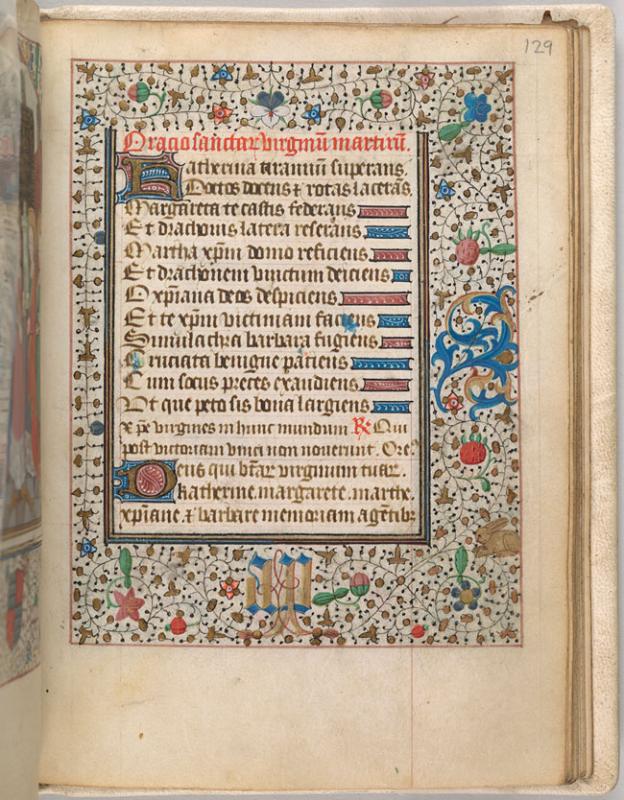 129
Oracio sanctar virginū martirū.
Katherina tirannum superans
Doctos doctus & rotas laceras,
Margareta te castis federans
Et drachonis latera reserans
Martha xp̄m domo reficiens
Et drachonem vinctum deiciens
O xp̄iana deos despiciens
Et te xp̄m victimam faciens
Simulachra barbara fugiens
Cruciata benigne patiens
Cum sociis preces exaudiens
Ut que peto sis bona largiens
xp̄e virgines in hunc mundum ℟ Qui
post victoriam vinci non noverunt. Ore?
Deus qui btār virginum tuar.
katherine. margarete. marthe.
xp̄iane. & barbare memoriam agētibz